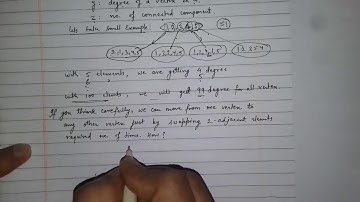 y: degree of a vertex
z: no. of connected component.
Lets take small example: 1 2 3 4 5
2,1,3,4,5 1,3,2,4,5 1 2 3 5 4
with 5 elements, we are getting 4 degree
with 100 elements, we will get 99 degree for all vertex.
If you think carefully, we can move from one vertex to
any other vertex just by swapping 2-adjacent elements
required no. of time. How?